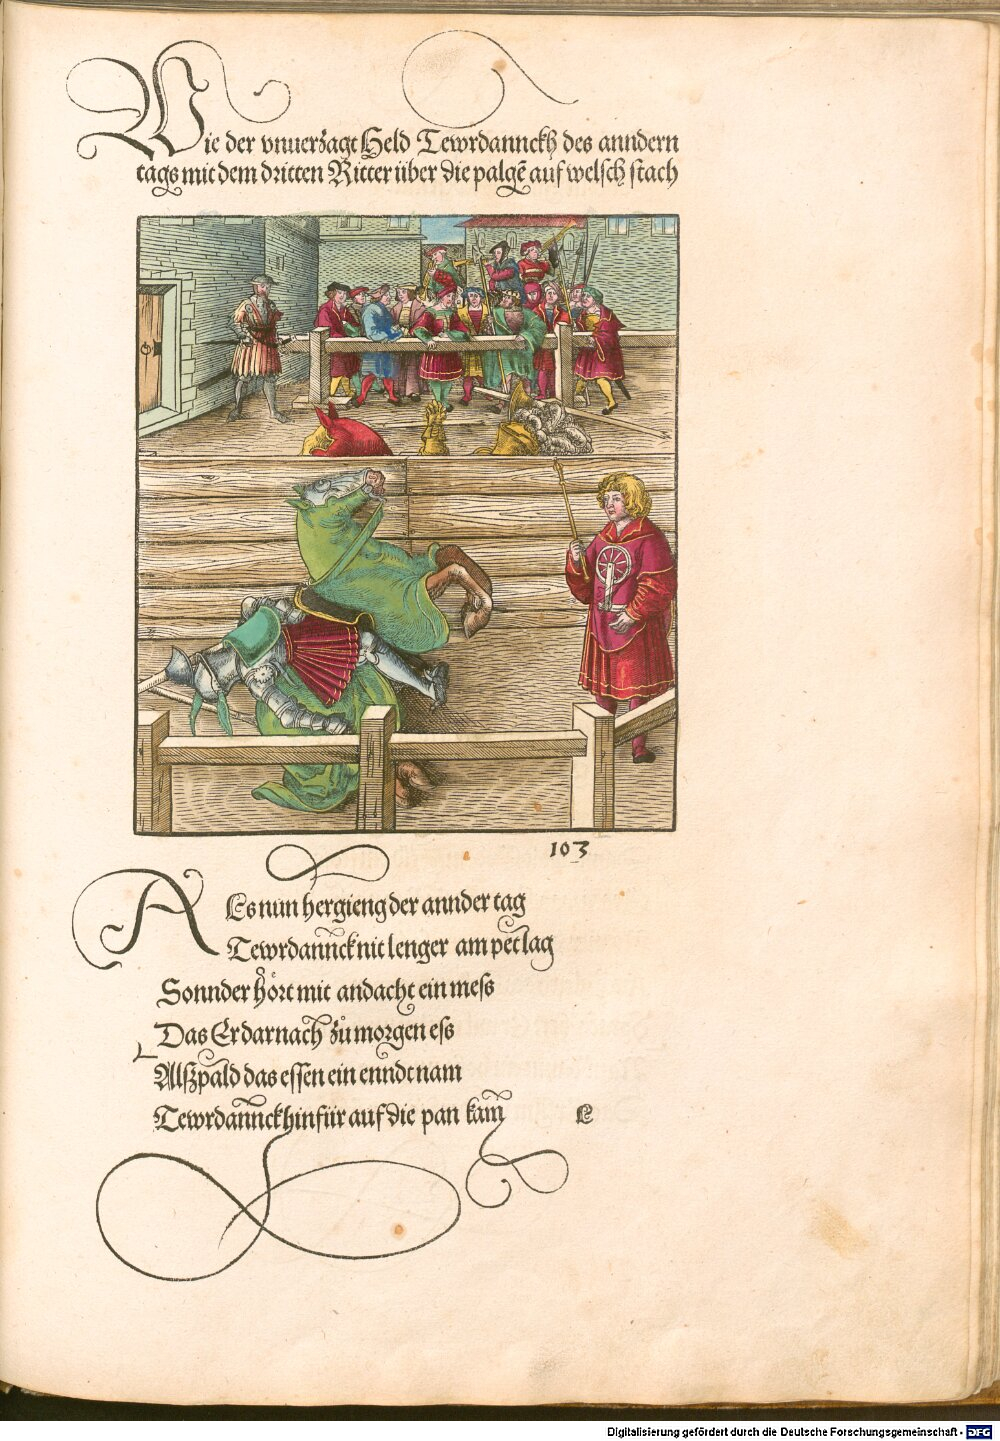 Wie der vnuerzagt Held Tewrdannckh des anndern
tags mit dem dritten Ritter über die palgē auf welsch stach
103
ALs nun hergieng der annder tag
Tewrdannck nit lenger am pet lag
Sonnder hoͤrt mit andacht ein mess
Das Er darnach zů morgen ess
Alsspald das essen ein enndt nam
Tewrdannckh hinfür auf die pan kam
Digitalisierung gefördert durch die Deutsche Forschungsgemeinschaft - DFG